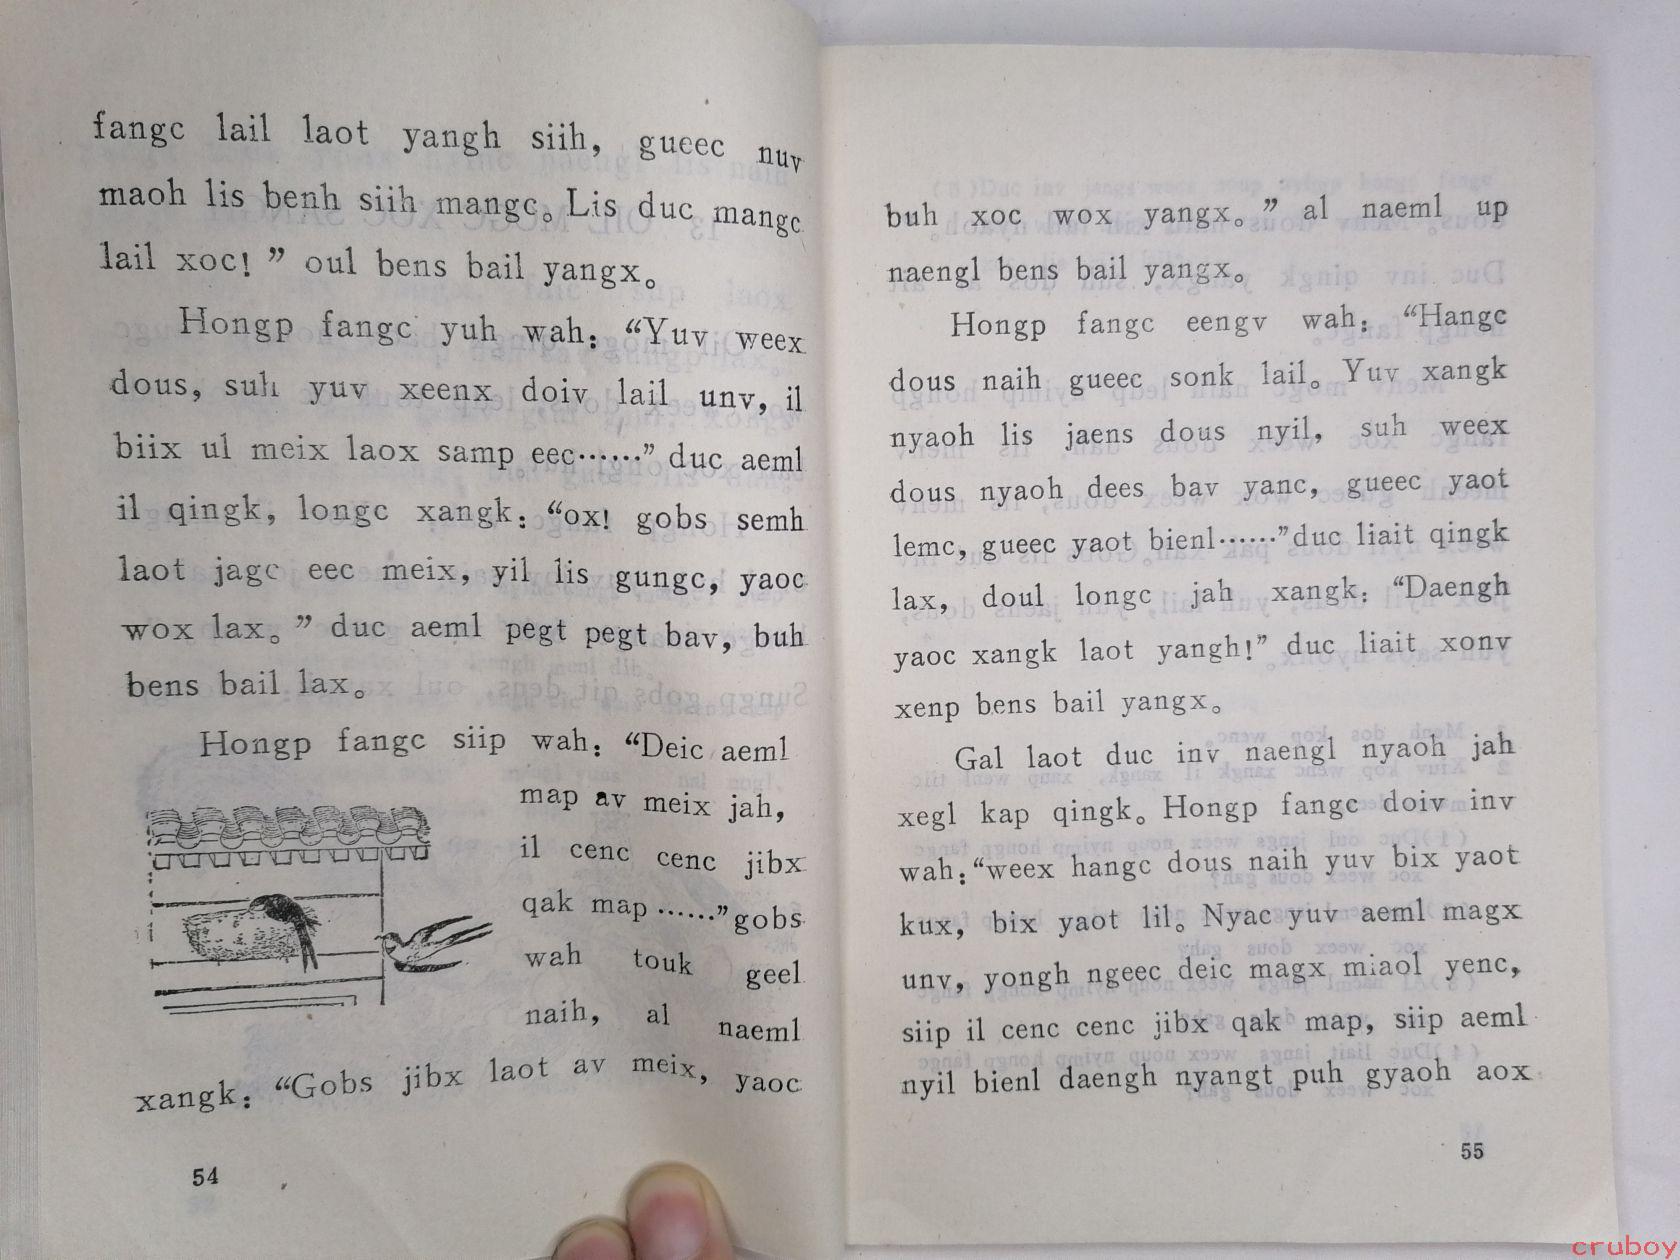 fangc lail laot yangh siih, gueec nuv
maoh lis benh siih mangc。Lis duc mangc
lail xoc! ” oul bens bail yangx。
Hongp fangc yuh wah：“Yuv weex
dous, suh yuv xeenx doiv lail unv, il
biix ul meix laox samp eec……” duc aeml
il qingk, longc xangk：“ox! gobs semh
laot jagc eec meix, yil lis gungc, yaoc
wox lax。” duc aeml pegt pegt bav, buh
bens bail lax。
Hongp fangc siip wah：“Deic aeml
map av meix jah,
il cenc cenc jibx
qak map ……”gobs
wah touk geel
naih, al naeml
xangk：“Gobs jibx laot av meix, yaoc
54
buh xoc wox yangx。” al naeml up
naengl bens bail yangx。
Hongp fangc eengv wah：“Hangc
dous naih gueec sonk lail。Yuv xangk
nyaoh lis jaens dous nyil, suh weex
dous nyaoh dees bav yanc, gueec yaot
lemc, gueec yaot bienl……”duc liait qingk
lax, doul longc jah xangk：“Daengh
yaoc xangk laot yangh!” duc liait xonv
xenp bens bail yangx。
Gal laot duc inv naengl nyaoh jah
xegl kap qingk。Hongp fangc doiv inv
wah：“weex hangc dous naih yuv bix yaot
kux, bix yaot lil。Nyac yuv aeml magx
unv, yongh ngeec deic magx miaol yenc,
siip il cenc cenc jibx qak map, siip aeml
nyil bienl daengh nyangt puh gyaoh aox
55
cruboy